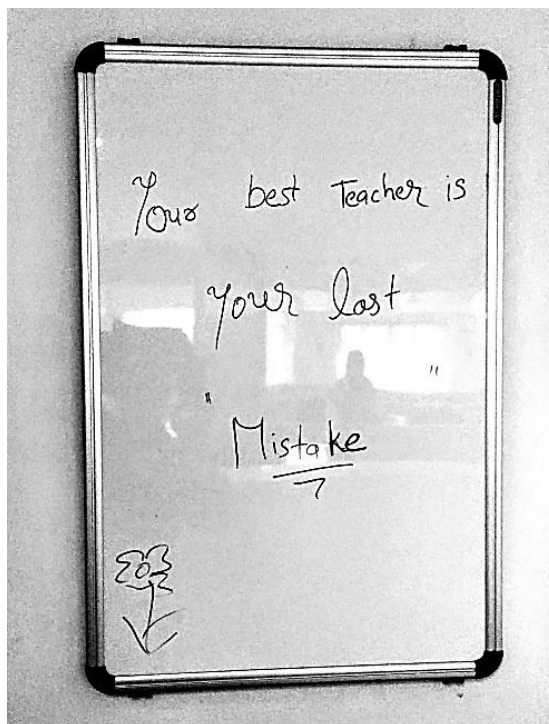 Your best Teacher is
your last
"Mistake"